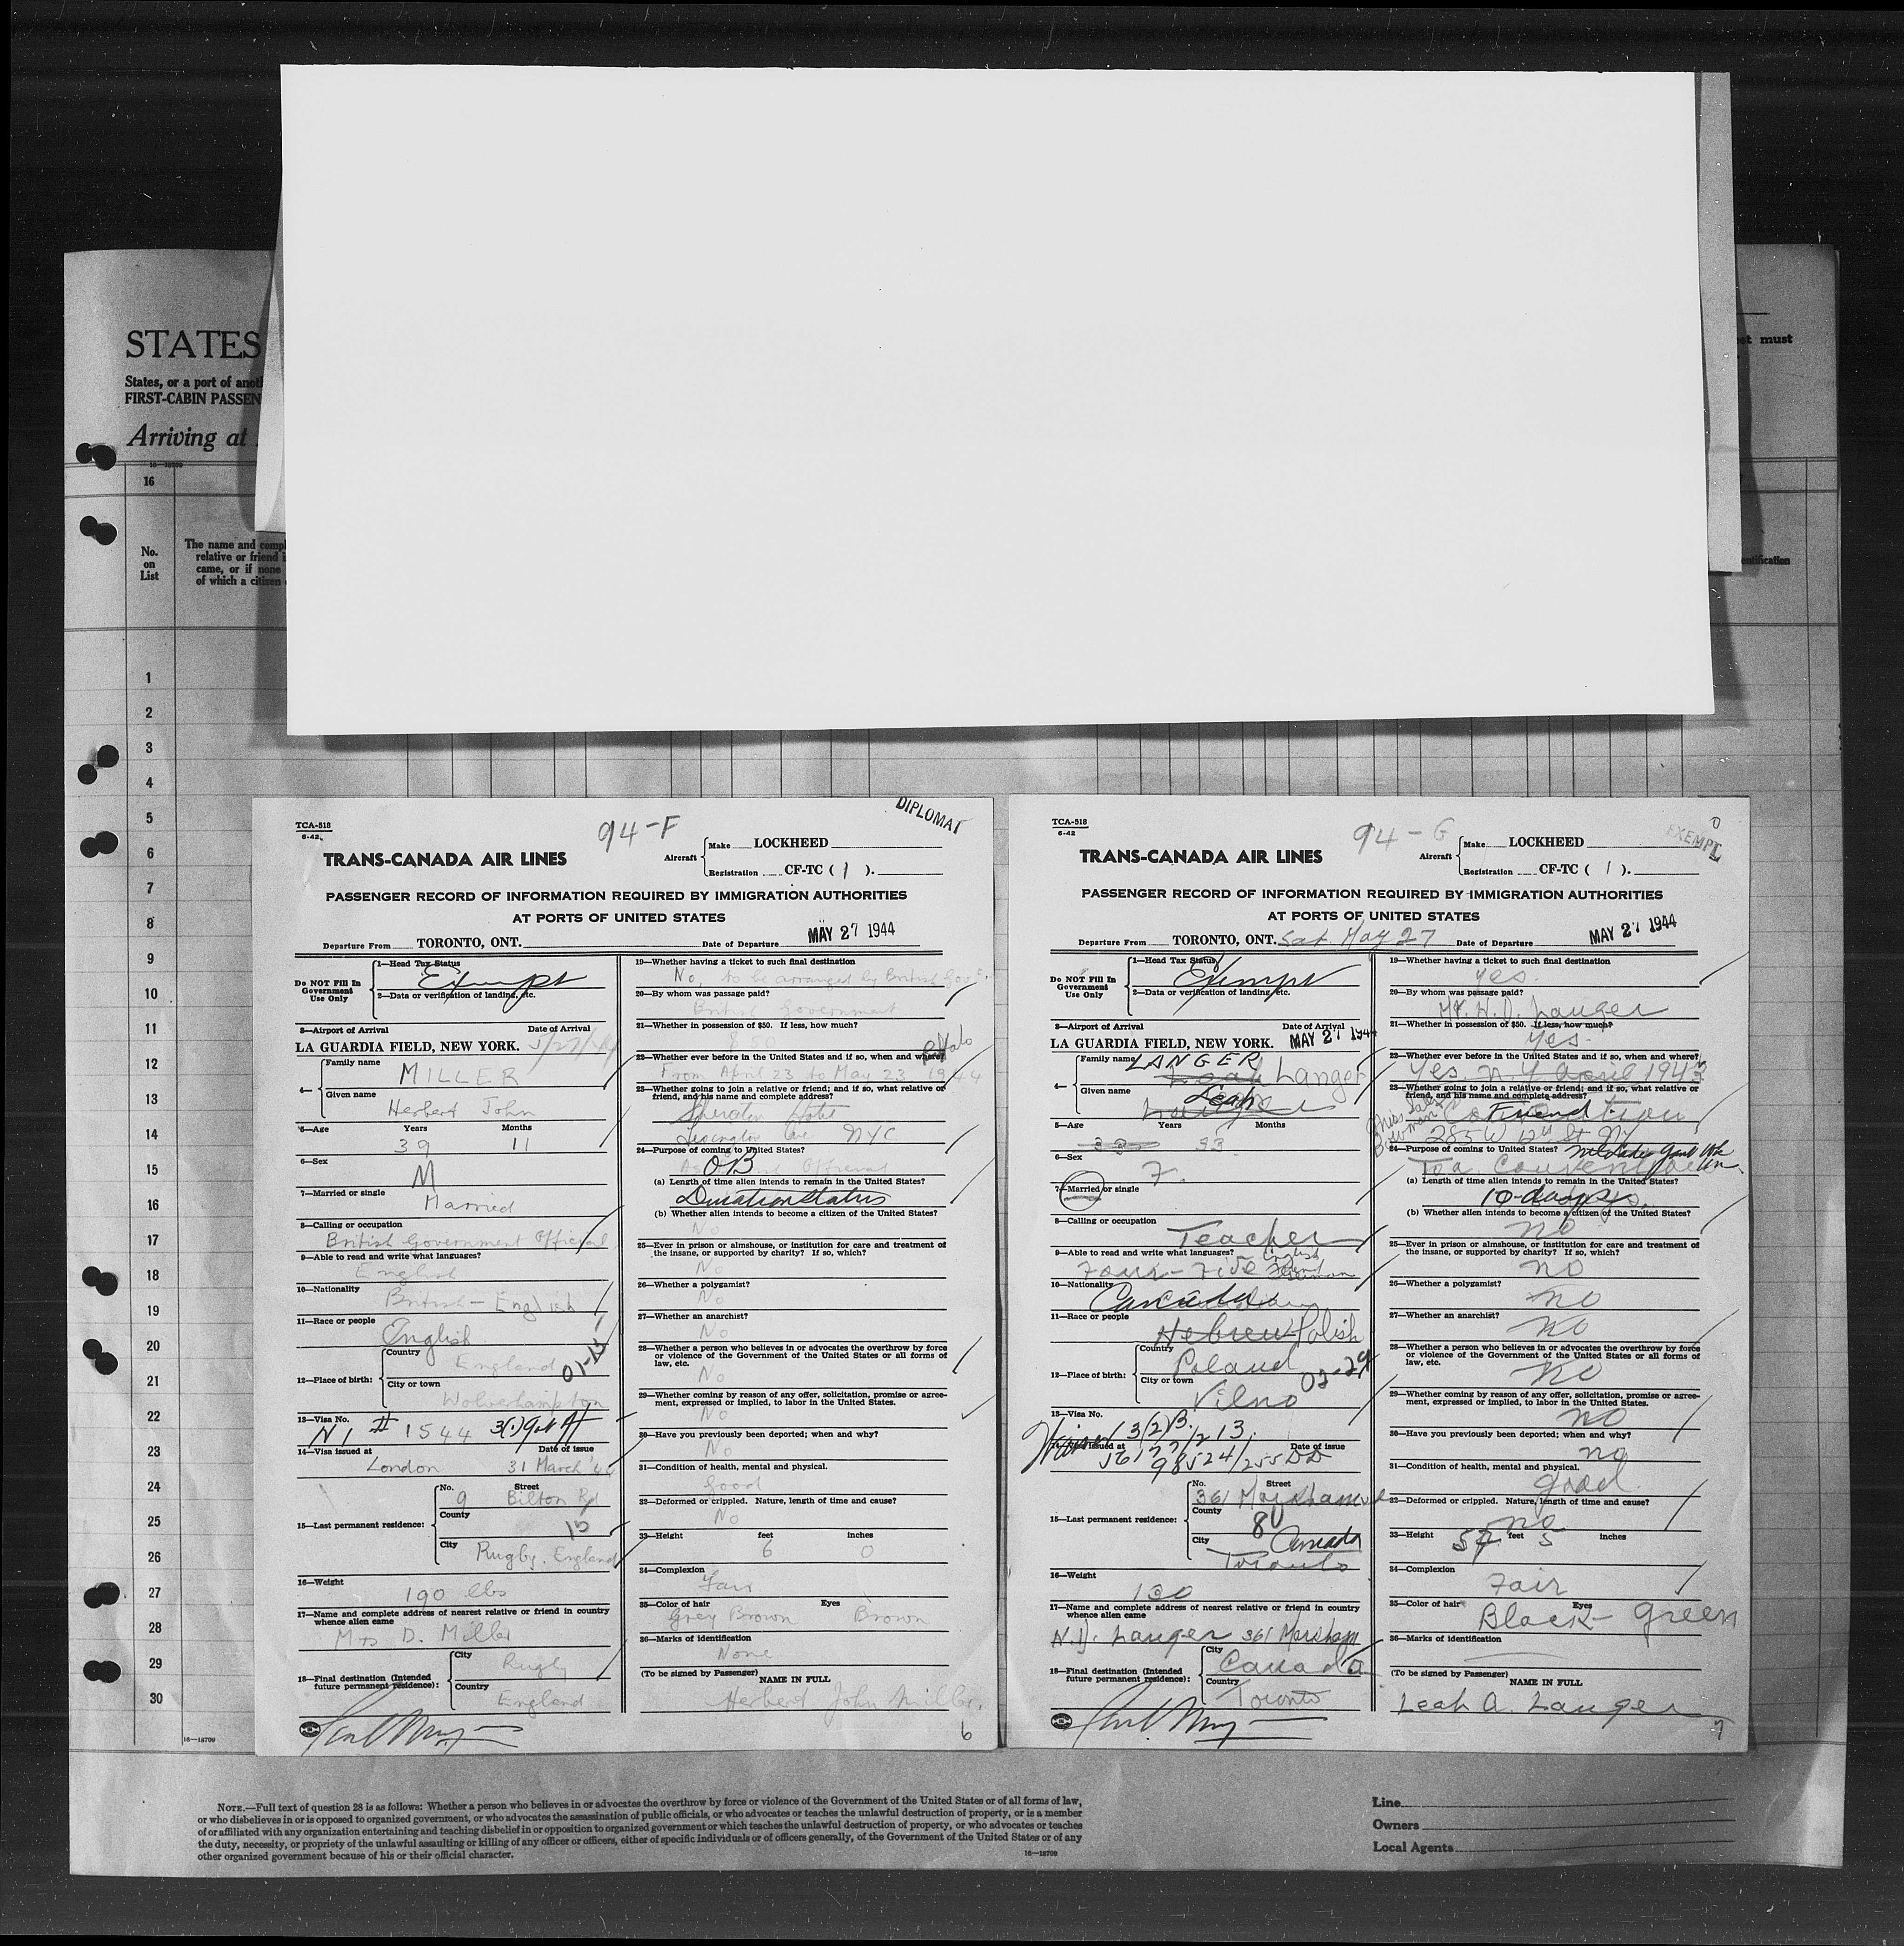 STATES
States, or a port of
FIRST-CABIN PASSEN
Arriving at
must
16—18709
16
No.
on
List
The name and
relative or friend
came, or if none
of which a citizen
1
2
3
4
5
6
7
8
9
10
11
12
13
14
15
16
17
18
19
20
21
22
23
24
25
26
27
28
29
30
16—18709
TCA-518
6-42
94-F
DIPLOMAT
TRANS-CANADA AIR LINES
Aircraft
Make LOCKHEED
Registration CF-TC ( 1 ).
PASSENGER RECORD OF INFORMATION REQUIRED BY IMMIGRATION AUTHORITIES
AT PORTS OF UNITED STATES
Departure From TORONTO, ONT. Date of Departure MAY 27 1944
Do NOT Fill In
Government
Use Only
1—Head Tax Status
Exempt
2—Data or verification of landing, etc.
3—Airport of Arrival Date of Arrival
LA GUARDIA FIELD, NEW YORK.
4—
Family name
MILLER
Given name
Herbert John
5—Age Years Months
39 11
6—Sex
M
7—Married or single
Married
8—Calling or occupation
British Government Official
9—Able to read and write what languages?
English
10—Nationality
British - English
11—Race or people
English
12—Place of birth:
Country
England
City or town
Wolverhampton
13—Visa No.
# 1544
14—Visa issued at Date of issue
London 31 March '44
15—Last permanent residence:
No. Street
9 Bilton Rd
County
City
Rugby. England
16—Weight
190 lbs
17—Name and complete address of nearest relative or friend in country
whence alien came
Mrs D. Miller
18—Final destination (Intended
future permanent residence):
City
Rugby
Country
England
19—Whether having a ticket to such final destination
No, to be arranged by British Govt.
20—By whom was passage paid?
British Government
21—Whether in possession of $50. If less, how much?
$50
22—Whether ever before in the United States and if so, when and where?
From April 23 to May 23 1944
23—Whether going to join a relative or friend; and if so, what relative or
friend, and his name and complete address?
Sheraton Hotel
Lexington Ave NYC
24—Purpose of coming to United States?
OB
(a) Length of time alien intends to remain in the United States?
Duration status
(b) Whether alien intends to become a citizen of the United States?
No
25—Ever in prison or almshouse, or institution for care and treatment of
the insane, or supported by charity? If so, which?
No
26—Whether a polygamist?
No
27—Whether an anarchist?
No
28—Whether a person who believes in or advocates the overthrow by force
or violence of the Government of the United States or all forms of
law, etc.
No
29—Whether coming by reason of any offer, solicitation, promise or agree-
ment, expressed or implied, to labor in the United States.
No
30—Have you previously been deported; when and why?
No
31—Condition of health, mental and physical.
Good
32—Deformed or crippled. Nature, length of time and cause?
No
33—Height feet inches
6 0
34—Complexion
Fair
35—Color of hair Eyes
Grey Brown Brown
36—Marks of identification
None
(To be signed by Passenger) NAME IN FULL
Herbert John Miller.
6
TCA-518
6-42
94-G
EXEMPT
TRANS-CANADA AIR LINES
Aircraft
Make LOCKHEED
Registration CF-TC ( 1 ).
PASSENGER RECORD OF INFORMATION REQUIRED BY IMMIGRATION AUTHORITIES
AT PORTS OF UNITED STATES
Departure From TORONTO, ONT. Sat. May 27 Date of Departure MAY 27 1944
Do NOT Fill In
Government
Use Only
1—Head Tax Status
Exempt
2—Data or verification of landing, etc.
3—Airport of Arrival Date of Arrival
LA GUARDIA FIELD, NEW YORK. MAY 27 1944
4—
Family name
LANGER
Leah Langer
Given name
Leah
5—Age Years Months
33
6—Sex
F.
7—Married or single
8—Calling or occupation
Teacher
9—Able to read and write what languages?
Four-Five English
10—Nationality
Canada
11—Race or people
Hebrew Polish
12—Place of birth:
Country
Poland
City or town
Vilno
02-29
13—Visa No.
3(2)B.
14—Visa issued at Date of issue
15—Last permanent residence:
No. Street
361 Markham
County
City
Canada
Toronto
16—Weight
130
17—Name and complete address of nearest relative or friend in country
whence alien came
N.D. Langer 361 Markham
18—Final destination (Intended
future permanent residence):
City
Canada
Country
Toronto
19—Whether having a ticket to such final destination
yes.
20—By whom was passage paid?
Mr. N.D. Langer
21—Whether in possession of $50. If less, how much?
yes-
22—Whether ever before in the United States and if so, when and where?
Yes. N.Y April 1943
23—Whether going to join a relative or friend; and if so, what relative or
friend, and his name and complete address?
Friend
285 W 12th St NY
24—Purpose of coming to United States?
To a Convention
(a) Length of time alien intends to remain in the United States?
10-days
(b) Whether alien intends to become a citizen of the United States?
no
25—Ever in prison or almshouse, or institution for care and treatment of
the insane, or supported by charity? If so, which?
no
26—Whether a polygamist?
no
27—Whether an anarchist?
no
28—Whether a person who believes in or advocates the overthrow by force
or violence of the Government of the United States or all forms of
law, etc.
no
29—Whether coming by reason of any offer, solicitation, promise or agree-
ment, expressed or implied, to labor in the United States.
no
30—Have you previously been deported; when and why?
no
31—Condition of health, mental and physical.
good
32—Deformed or crippled. Nature, length of time and cause?
no
33—Height feet inches
5 3
34—Complexion
Fair
35—Color of hair Eyes
Black - green
36—Marks of identification
(To be signed by Passenger) NAME IN FULL
Leah A. Langer
7
NOTE.—Full text of question 28 is as follows: Whether a person who believes in or advocates the overthrow by force or violence of the Government of the United States or of all forms of law,
or who disbelieves in or is opposed to organized government, or who advocates the assassination of public officials, or who advocates or teaches the unlawful destruction of property, or is a member
of or affiliated with any organization entertaining and teaching disbelief in or opposition to organized government or which teaches the unlawful destruction of property, or who advocates or teaches
the duty, necessity, or propriety of the unlawful assaulting or killing of any officer or officers, either of specific individuals or of officers generally, of the Government of the United States or of any
other organized government because of his or their official character.
16—18709
Line
Owners
Local Agents